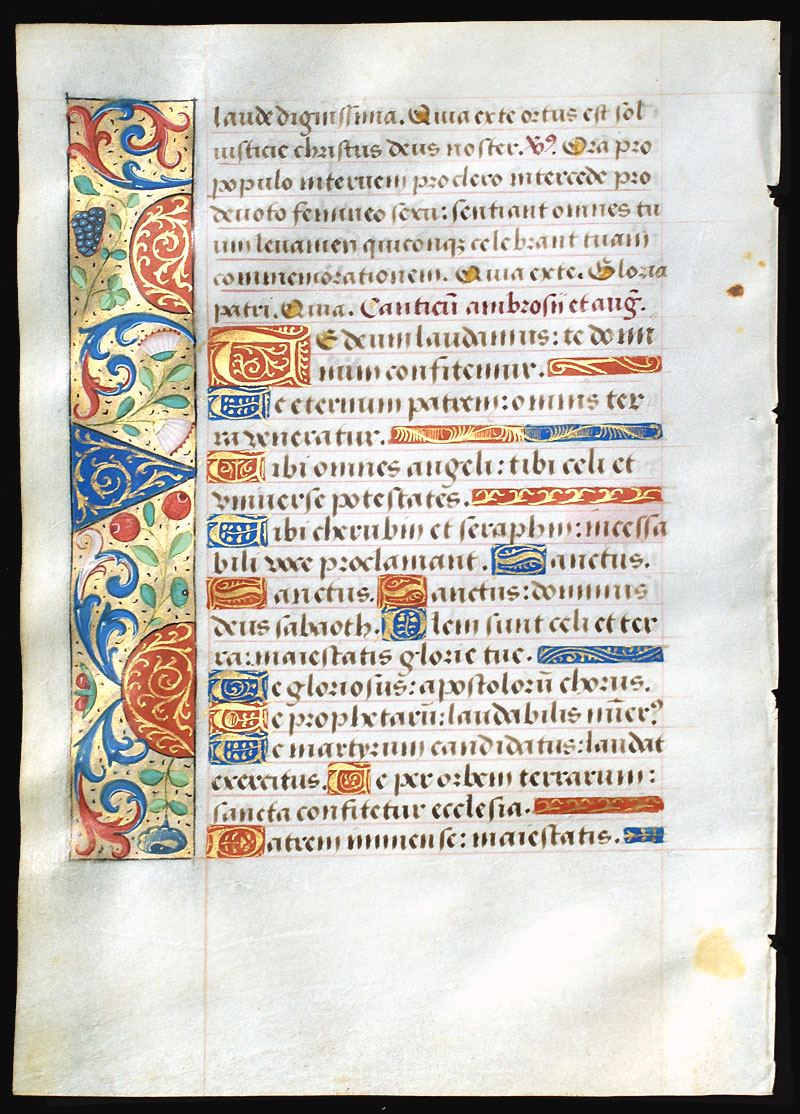 laude dignissima. Quia ex te ortus est sol
iusticie christus deus noster. V9. Ora pro
populo interueni pro clero intercede pro
deuoto femineo sexu: sentiant omnes tu
um leuamen quiconqz celebrant tuam
commemorationem. Quia ex te. Gloria
patri. Quia. Canticū ambrosij et aug̃.
Te deum laudamus: te domi
num confitemur.
Te eternum patrem: omnis ter
ra veneratur.
Tibi omnes angeli: tibi celi et
vniuerse potestates.
Tibi cherubin et seraphin: incessa
bili voce proclamant. Sanctus.
Sanctus. Sanctus: dominus
deus sabaoth. Pleni sunt celi et ter
ra: maiestatis glorie tue.
Te gloriosus: apostolorū chorus.
Te prophetarū: laudabilis nūer9
Te martyrum candidatus: laudat
exercitus. Te per orbem terrarum:
sancta confitetur ecclesia.
Patrem immense: maiestatis.